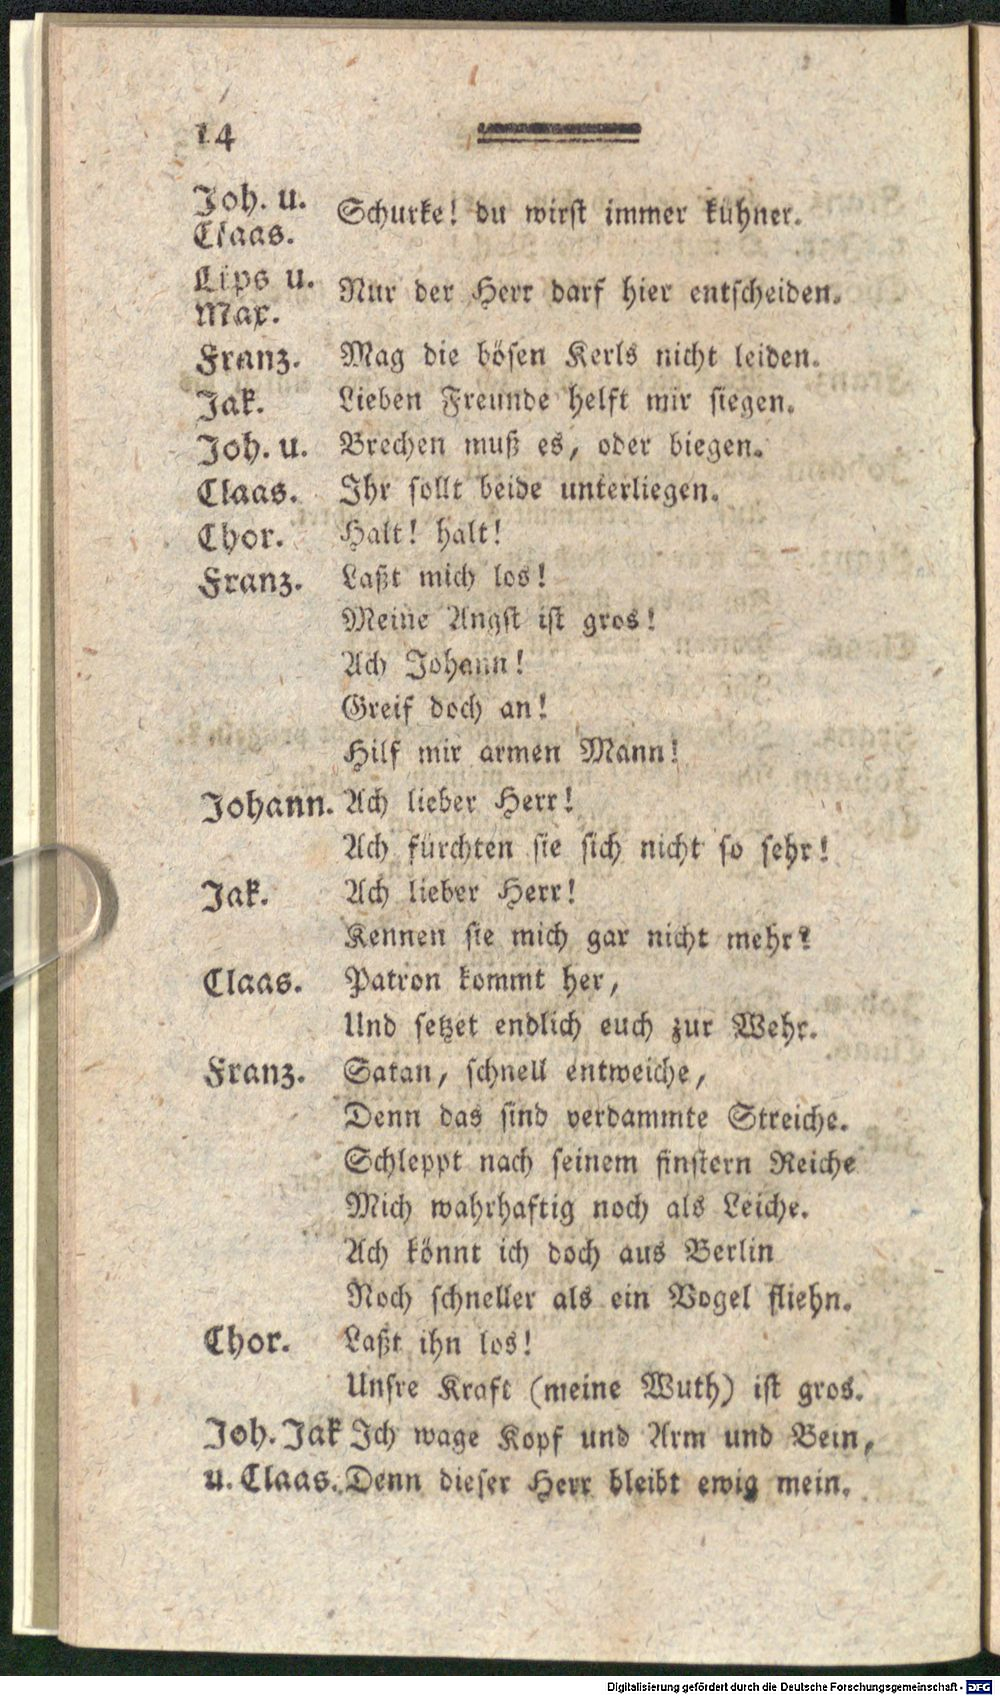 14
Joh. u.
Claas. Schurke! du wirst immer kühner.
Lips u.
Max. Nur der Herr darf hier entscheiden.
Franz. Mag die bösen Kerls nicht leiden.
Jak. Lieben Freunde helft mir siegen.
Joh. u. Brechen muß es, oder biegen.
Claas. Ihr sollt beide unterliegen.
Chor. Halt! halt!
Franz. Laßt mich los!
Meine Angst ist gros!
Ach Johann!
Greif doch an!
Hilf mir armen Mann!
Johann. Ach lieber Herr!
Ach fürchten sie sich nicht so sehr!
Jak. Ach lieber Herr!
Kennen sie mich gar nicht mehr?
Claas. Patron kommt her,
Und setzet endlich euch zur Wehr.
Franz. Satan, schnell entweiche,
Denn das sind verdammte Streiche.
Schleppt nach seinem finstern Reiche
Mich wahrhaftig noch als Leiche.
Ach könnt ich doch aus Berlin
Noch schneller als ein Vogel fliehn.
Chor. Laßt ihn los!
Unsre Kraft (meine Wuth) ist gros.
Joh. Jak Ich wage Kopf und Arm und Bein,
u. Claas. Denn dieser Herr bleibt ewig mein.
Digitalisierung gefördert durch die Deutsche Forschungsgemeinschaft - DFG